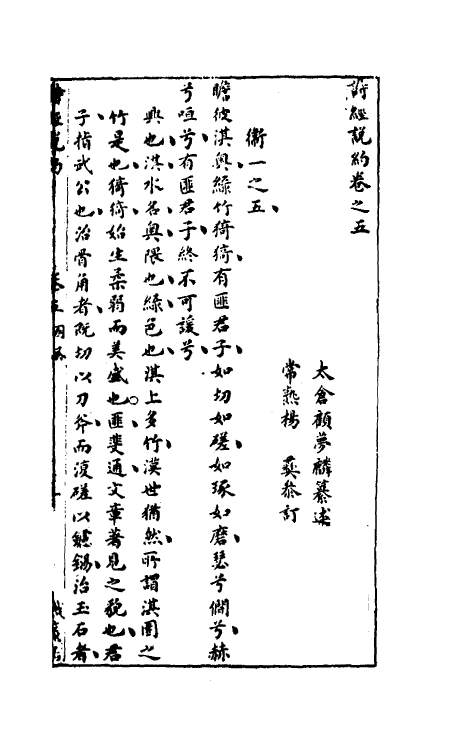 詩經說約卷之五
太倉顧夢麟纂述
常熟楊　彝叅訂
衞一之五
瞻彼淇奧綠竹猗猗有匪君子如切如磋如琢如磨瑟兮僩兮赫
兮咺兮有匪君子終不可諼兮
興也淇水名奧隈也綠色也淇上多竹漢世猶然所謂淇園之
竹是也猗猗始生柔弱而美盛也匪斐通文章著見之貌也君
子指武公也治骨角者旣切以刀斧而復磋以鑢鍚治玉石者